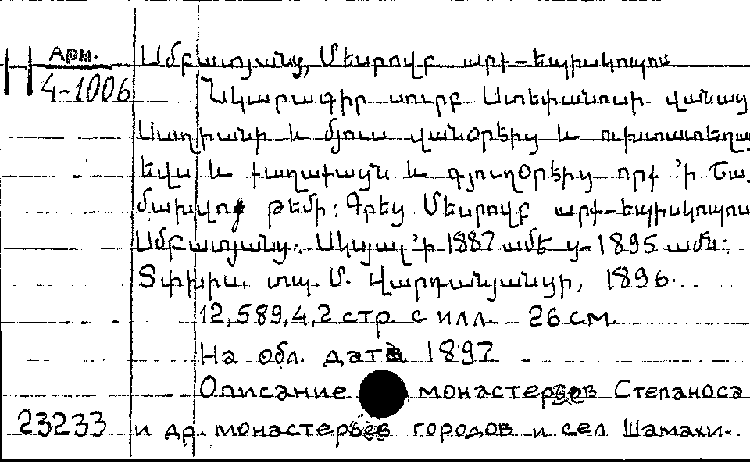 Арм.
4-1006
Սմբատյանց, Մեսրովբ արք-եպիսկոպոս
Նկարագիր սուրբ Ստեփանոսի վանաց
Սաղիանի և միւս վանօրէից և ուխտատեղա
եվս և քաղաքացն և գյուղօրէից որք ՚ի Շա
մախվոյ թեմի: Գրեց Մեսրովբ արք-եպիսկոպոս
Սմբատյանց. Սկսյալ ՚ի 1887 ամէ ց 1895 ամն:
Տփխիս, տպ. Մ. Վարդանյանցի, 1896.
12,589,4,2 стр. с илл. 26 см.
На обл. дата 1897
Описание монастерьев Степаноса
23233 и др. монастерьев городов и сел Шамахи.